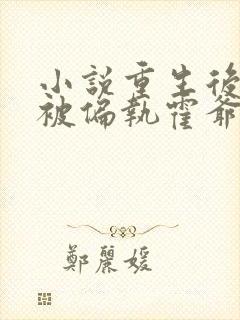 小說重生後
被偏執霍爺
鄭麗媛